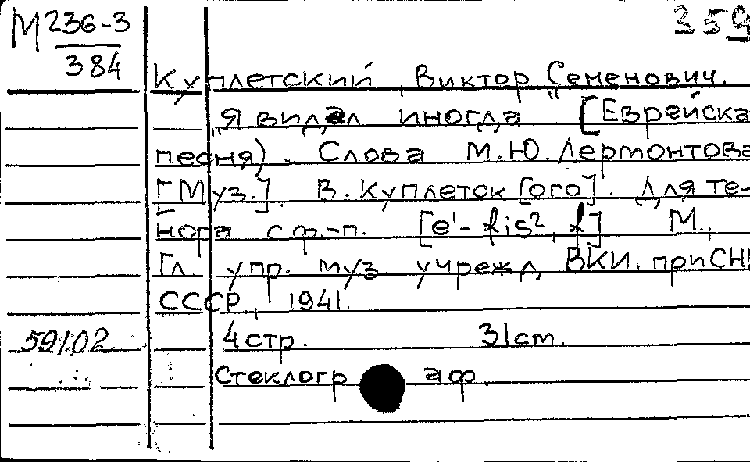 М 236-3
384
359
Куплетский Виктор Семенович.
"Я видел иногда [Еврейска
песня). Слова М.Ю. Лермонтова
[Муз.]. В. Куплетск [ого]. Для те-
нора с ф.-п. [e'- fis², f] М.,
Гл. упр. муз. учрежд. ВКИ. при СНК
СССР, 1941.
59102 4 стр. 31 cm.
Стеклогр аф